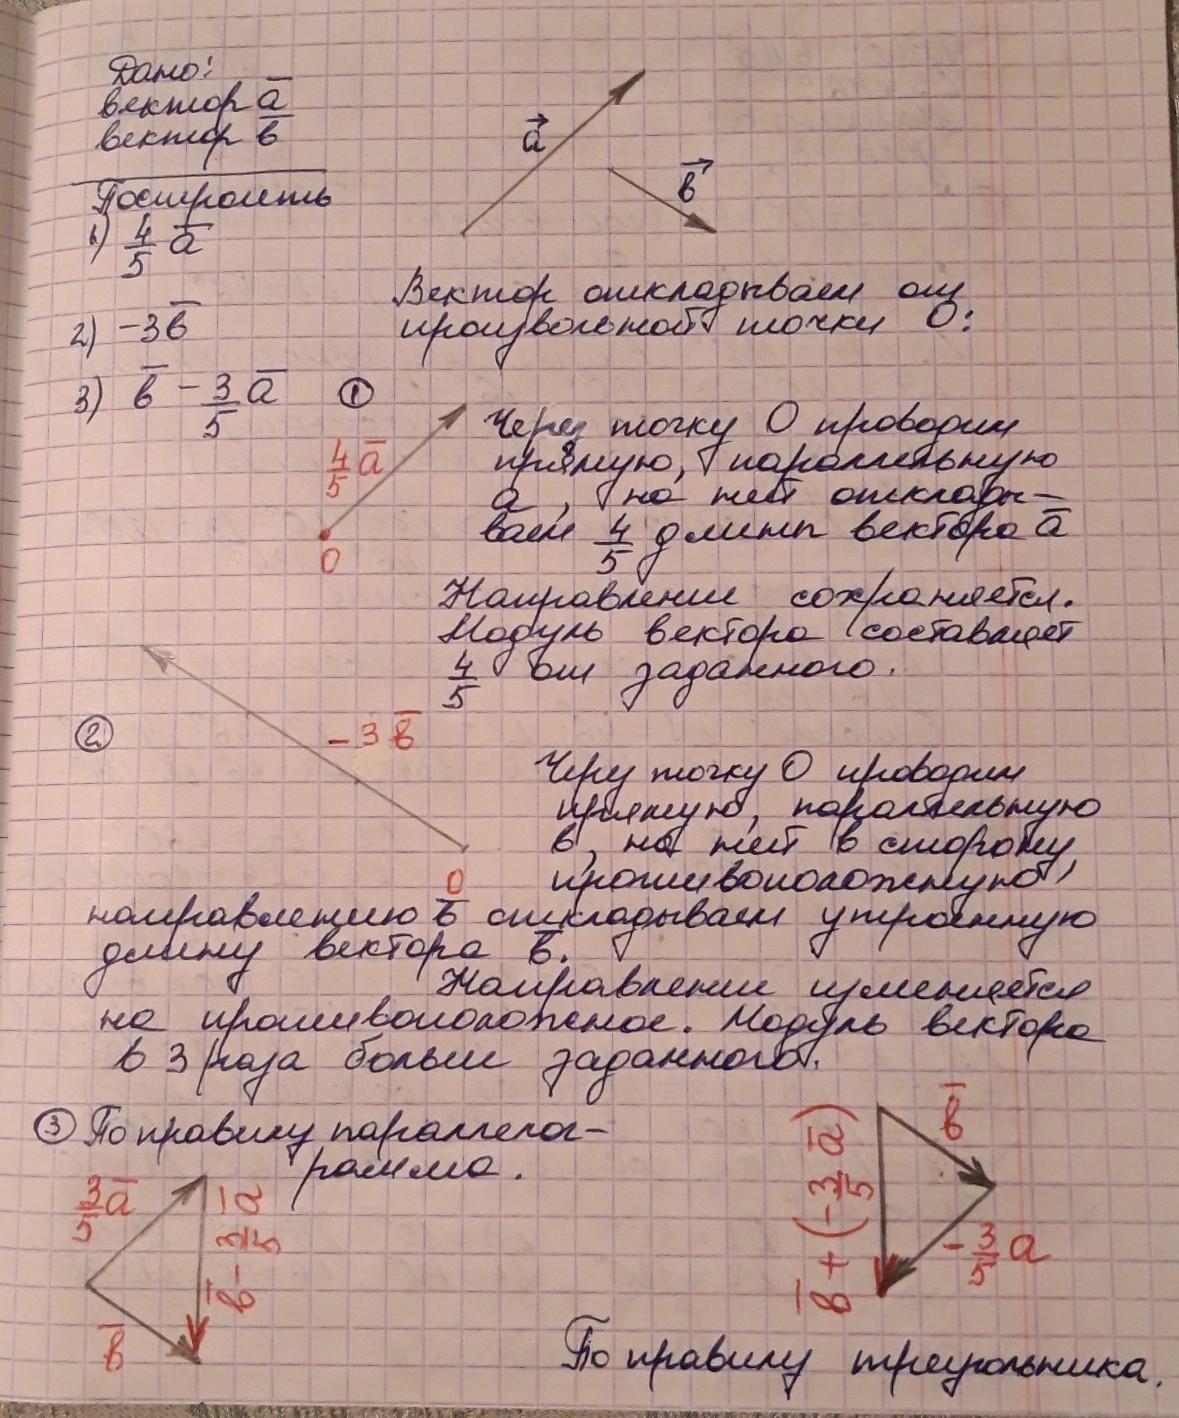 Дано:
вектор a̅
вектор b̅
Построить
1) 4/5 a̅
2) -3b̅
3) b̅ - 3/5 a̅
a⃗
b⃗
Вектор откладываем от
произвольной точки О:
①
4/5 a̅
О
Через точку О проводим
прямую, параллельную
a̅, на ней отклады-
ваем 4/5 длины вектора a̅
Направление сохраняется.
Модуль вектора составляет
4/5 от заданного.
②
-3b̅
О
Через точку О проводим
прямую, параллельную
b̅, на ней в сторону,
противоположную
направлению b̅ откладываем утроенную
длину вектора b̅.
Направление изменяется
на противоположное. Модуль вектора
в 3 раза больше заданного.
③ По правилу параллелог-
рамма.
3/5 a̅
b̅ - 3/5 a̅
b̅
b̅ + (-3/5 a̅)
b̅
-3/5 a
По правилу треугольника.